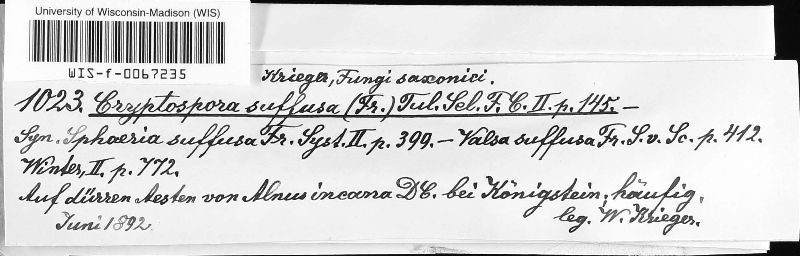 University of Wisconsin-Madison (WIS)
WIS-f-0067235
Krieger, Fungi saxonici.
1023. Cryptospora suffusa (Fr.) Tul. Sel. F. C. II. p. 145. –
Syn. Sphaeria suffusa Fr. Syst. II. p. 399. – Valsa suffusa Fr. S. v. Sc. p. 412.
Winter, II. p. 772.
Auf dürren Aesten von Alnus incana DC. bei Königstein, häufig.
Juni 1892. leg. W. Krieger.